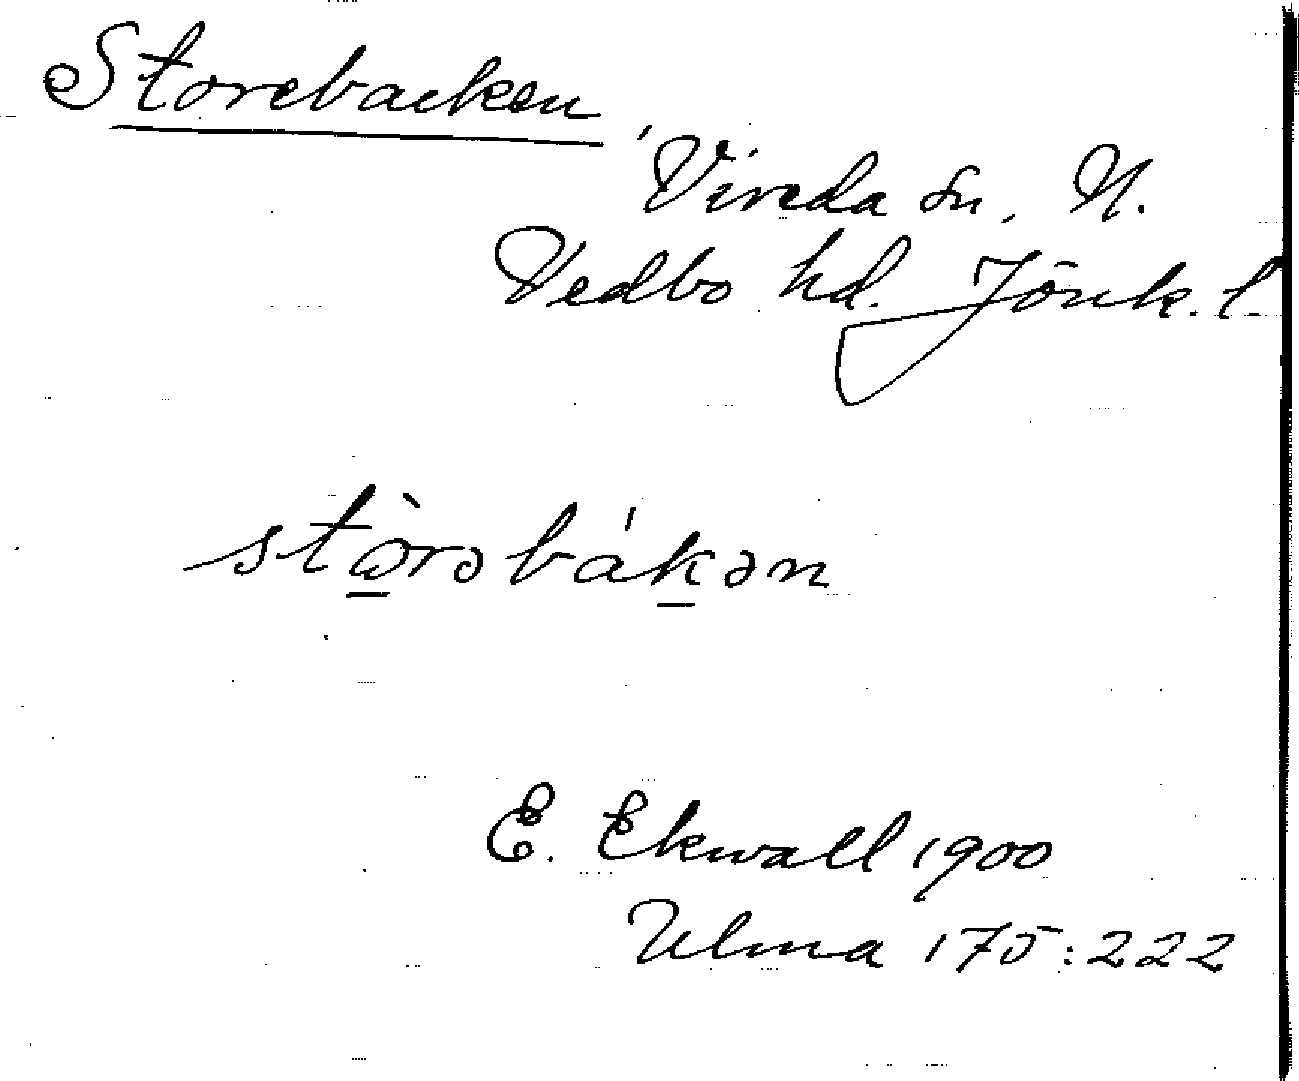 Storebacken
Vireda sn, N.
Vedbo hd. Jönk. l.
stò̠rəbák̠ən
E. Ekwall 1900
Ulma 175:222